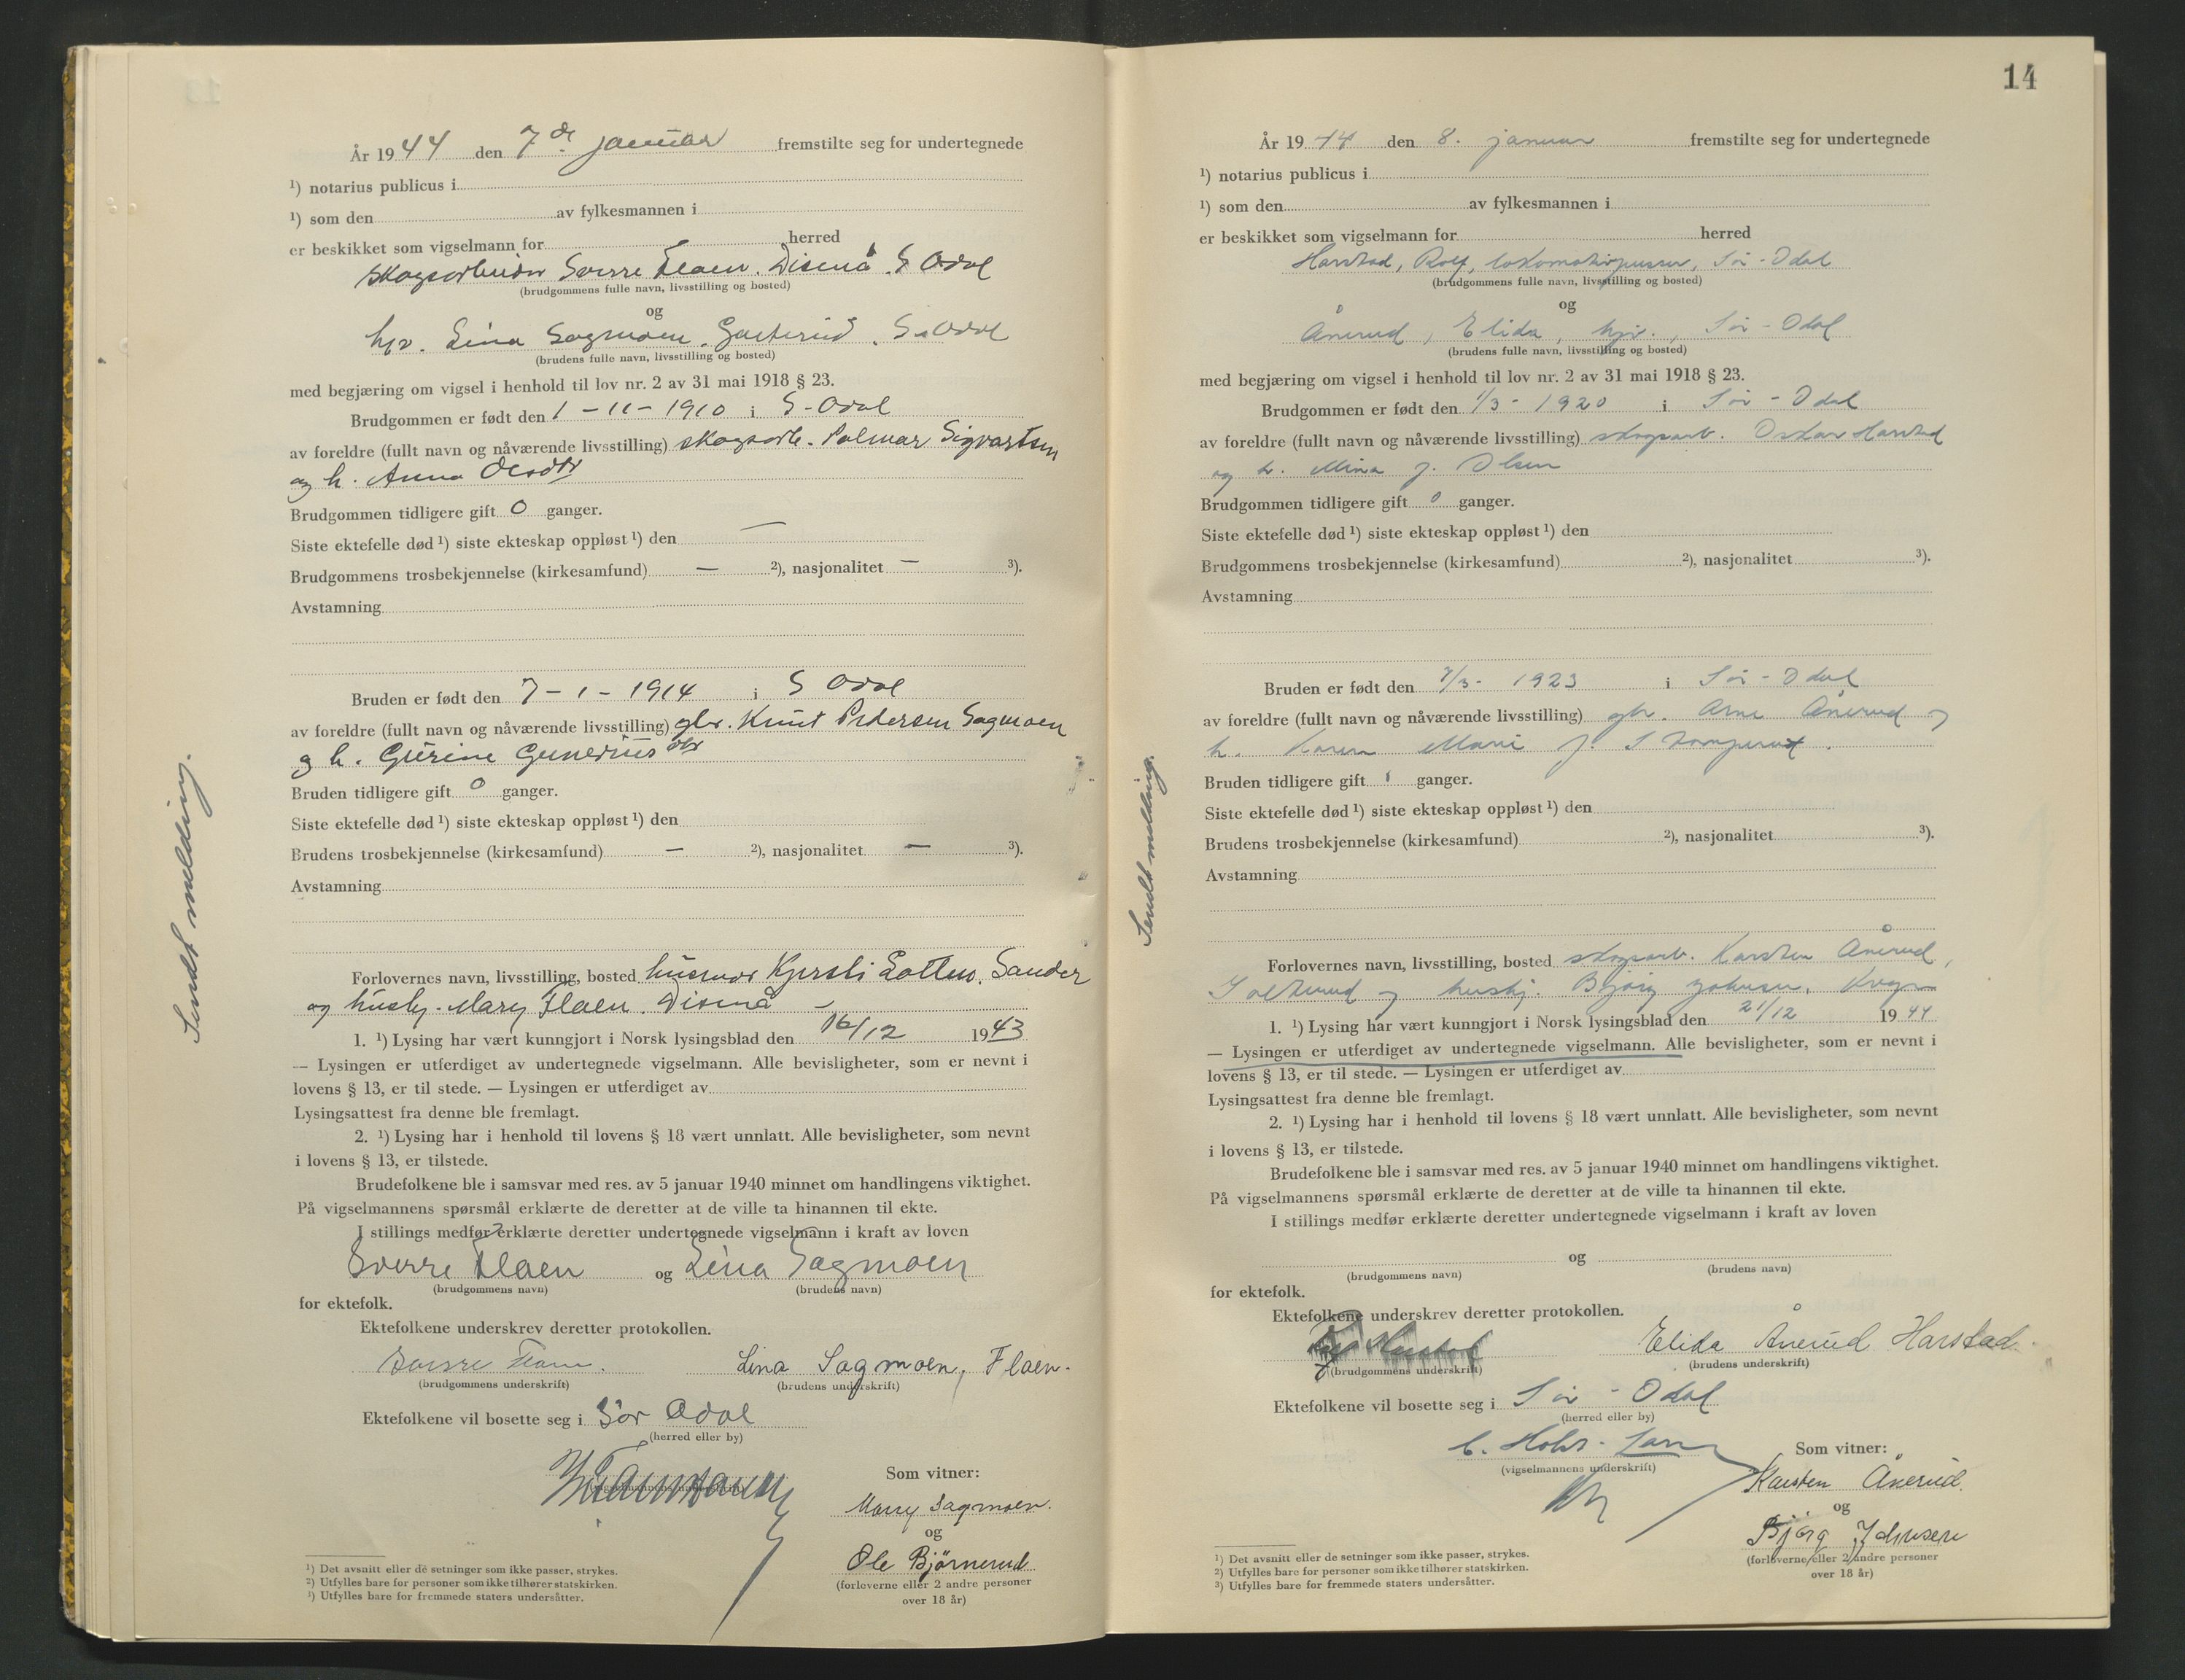 År 1944 den 7de januar fremstilte seg for undertegnede
¹) notarius publicus i
¹) som den av fylkesmannen i
er beskikket som vigselmann for herred
skogsarbeider Sverre Flaen. Disenå. S Odal
(brudgommens fulle navn, livsstilling og bosted)
og
hjv. Lina Sagmoen. Galterud. S-Odal
(brudens fulle navn, livsstilling og bosted)
med begjæring om vigsel i henhold til lov nr. 2 av 31 mai 1918 § 23.
Brudgommen er født den 1-11-1910 i S-Odal
av foreldre (fullt navn og nåværende livsstilling) skogsarb. Palmar Sigvartsen
og h. Anna Olsdtr
Brudgommen tidligere gift 0 ganger.
Siste ektefelle død ¹) siste ekteskap oppløst ¹) den —
Brudgommens trosbekjennelse (kirkesamfund) — ²), nasjonalitet — ³).
Avstamning
Bruden er født den 7-1-1914 i S Odal
av foreldre (fullt navn og nåværende livsstilling) gbr. Knut Pedersen Sagmoen
og h. Gurine Gunerius dtr
Bruden tidligere gift 0 ganger.
Siste ektefelle død ¹) siste ekteskap oppløst ¹) den
Brudens trosbekjennelse (kirkesamfund) — ²), nasjonalitet — ³).
Avstamning
Forlovernes navn, livsstilling, bosted husmor Kjersti Sander
og hushj. Mary Flaen. Disenå —
1. ¹) Lysing har vært kunngjort i Norsk lysingsblad den 16/12 1943
— Lysingen er utferdiget av undertegnede vigselmann. Alle bevisligheter, som er nevnt i
lovens § 13, er til stede. — Lysingen er utferdiget av
Lysingsattest fra denne ble fremlagt.
2. ¹) Lysing har i henhold til lovens § 18 vært unnlatt. Alle bevisligheter, som nevnt
i lovens § 13, er tilstede.
Brudefolkene ble i samsvar med res. av 5 januar 1940 minnet om handlingens viktighet.
På vigselmannens spørsmål erklærte de deretter at de ville ta hinannen til ekte.
I stillings medfør erklærte deretter undertegnede vigselmann i kraft av loven
Sverre Flaen og Lina Sagmoen
(brudgommens navn) (brudens navn)
for ektefolk.
Ektefolkene underskrev deretter protokollen.
Sverre Flaen. Lina Sagmoen, Flaen.
(brudgommens underskrift) (brudens underskrift)
Ektefolkene vil bosette seg i Sør Odal
(herred eller by)
(vigselmannens underskrift)
Som vitner:
Marry Sagmoen.
og
Ole Bjørnerud
(forloverne eller 2 andre personer
over 18 år)
¹) Det avsnitt eller de setninger som ikke passer, strykes.
²) Utfylles bare for personer som ikke tilhører statskirken.
³) Utfylles bare for fremmede staters undersåtter.
Sendt melding.
14
År 1944 den 8. januar fremstilte seg for undertegnede
¹) notarius publicus i
¹) som den av fylkesmannen i
er beskikket som vigselmann for herred
Harstad, Rolf, lokomotivpusser, Sør-Odal
(brudgommens fulle navn, livsstilling og bosted)
og
Ånerud, Elida, hjv., Sør-Odal
(brudens fulle navn, livsstilling og bosted)
med begjæring om vigsel i henhold til lov nr. 2 av 31 mai 1918 § 23.
Brudgommen er født den 1/3-1920 i Sør-Odal
av foreldre (fullt navn og nåværende livsstilling) skogsarb. Oskar Harstad
og h. Mina f. Olsen
Brudgommen tidligere gift 0 ganger.
Siste ektefelle død ¹) siste ekteskap oppløst ¹) den
Brudgommens trosbekjennelse (kirkesamfund) ²), nasjonalitet ³).
Avstamning
Bruden er født den 7/3-1923 i Sør-Odal
av foreldre (fullt navn og nåværende livsstilling) gbr. Arne Ånerud og
h. Karen Marie f. Skamperud.
Bruden tidligere gift ganger.
Siste ektefelle død ¹) siste ekteskap oppløst ¹) den
Brudens trosbekjennelse (kirkesamfund) ²), nasjonalitet ³).
Avstamning
Forlovernes navn, livsstilling, bosted skogsarb. Karsten Ånerud,
og hushj. Bjørg Johnsen,
1. ¹) Lysing har vært kunngjort i Norsk lysingsblad den 21/12 1944
— Lysingen er utferdiget av undertegnede vigselmann. Alle bevisligheter, som er nevnt i
lovens § 13, er til stede. — Lysingen er utferdiget av
Lysingsattest fra denne ble fremlagt.
2. ¹) Lysing har i henhold til lovens § 18 vært unnlatt. Alle bevisligheter, som nevnt
i lovens § 13, er tilstede.
Brudefolkene ble i samsvar med res. av 5 januar 1940 minnet om handlingens viktighet.
På vigselmannens spørsmål erklærte de deretter at de ville ta hinannen til ekte.
I stillings medfør erklærte deretter undertegnede vigselmann i kraft av loven
og
(brudgommens navn) (brudens navn)
for ektefolk.
Ektefolkene underskrev deretter protokollen.
Harstad Elida Ånerud Harstad.
(brudgommens underskrift) (brudens underskrift)
Ektefolkene vil bosette seg i Sør-Odal
(herred eller by)
(vigselmannens underskrift)
Som vitner:
Karsten Ånerud.
og
Bjørg Johnsen
(forloverne eller 2 andre personer
over 18 år)
¹) Det avsnitt eller de setninger som ikke passer, strykes.
²) Utfylles bare for personer som ikke tilhører statskirken.
³) Utfylles bare for fremmede staters undersåtter.
Sendt melding.